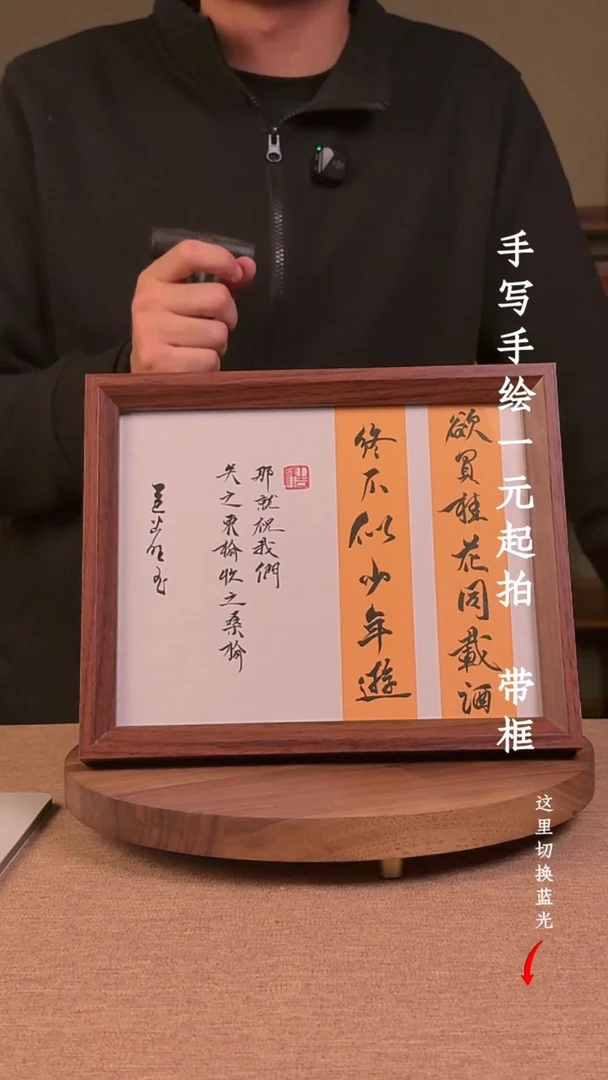 欲買桂花同載酒
終不似少年遊
那就祝我們
失之東隅收之桑榆
手写手绘一元起拍 带框
这里切换蓝光